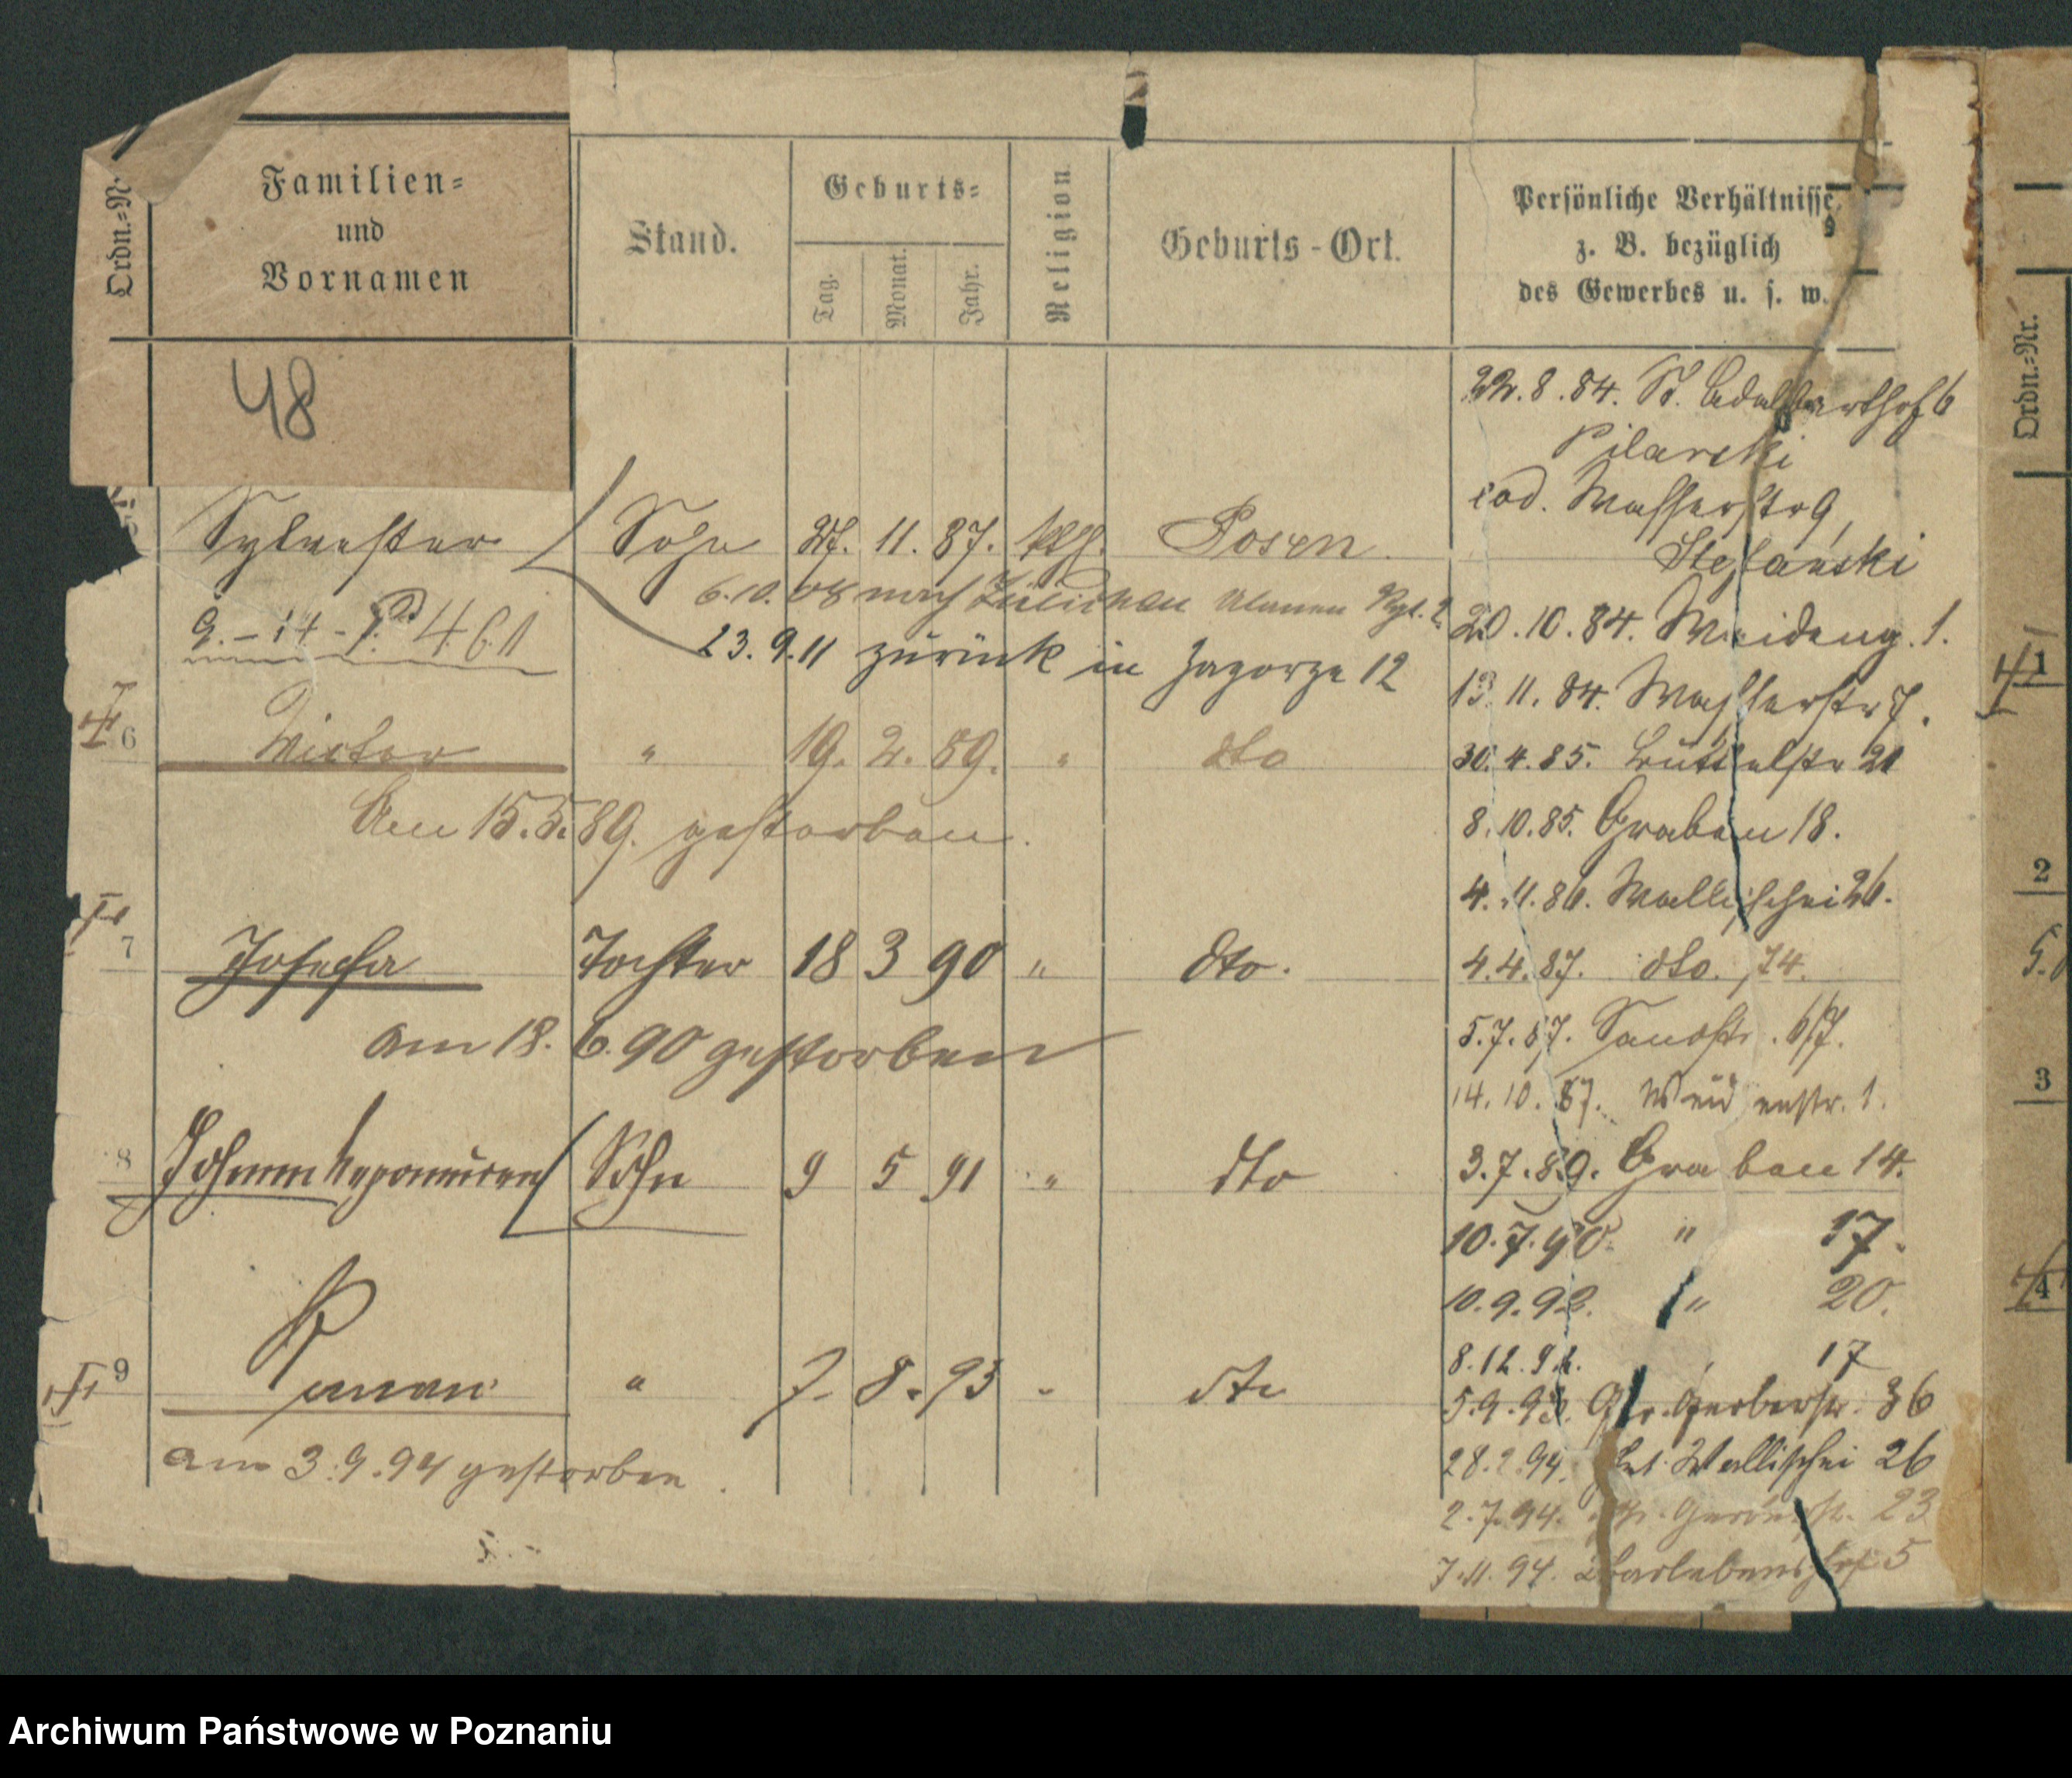 Ordn.-N
Familien-
und
Vornamen
Stand.
Geburts-
Tag.
Monat.
Jahr.
Religion
Geburts-Ort.
Persönliche Verhältnisse,
z. B. bezüglich
des Gewerbes u. s. w.
Ordn.-Nr.
48
22.8.84. St. Adalberthof 6
Pilarski
eod. Wasserstr 9,
Stefański
Sylvester Sohn 27. 11. 87. kth. Posen.
6.10.08 nach Züllichau Ulanen Rgt.
23.9.11 zurück in Zagorze 12
20.10.84. Weideng. 1.
13.11.84. Wasserstr 7.
6 Victor " 19. 2. 89. " dto
30.4.85. Büttelstr 21
Am 15.5.89. gestorben.
8.10.85. Graben 18.
4.11.86. Wallischei 26.
7 Josefa Tochter 18 3 90 " dto.
4.4.87. dto. 74.
am 18.6.90 gestorben
5.7.87. Sandstr. 6/7.
14.10.87. Weidenstr. 1.
8 Johann Nepomucen Sohn 9 5 91 " dto
3.7.89. Graben 14.
10.7.90. " 17.
10.9.92. " 20.
8.12.92. 17
9 Roman " 7. 8. 93 " dto
5.9.93. Gr. Gerberstr. 36
am 3.9.94 gestorben
28.2.94. Wallischei 26
2.7.94. 23
7.11.94. 5
1
2
3
4
Archiwum Państwowe w Poznaniu